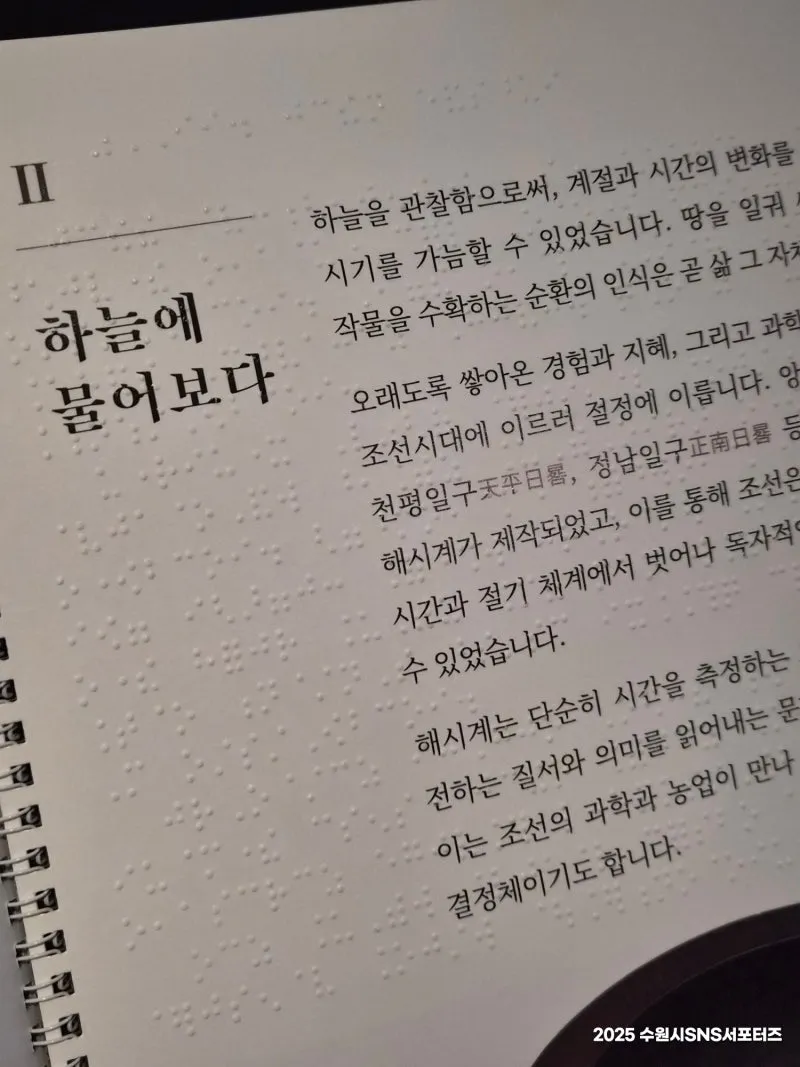 II
하늘에
물어보다
하늘을 관찰함으로써, 계절과 시간의 변화를
시기를 가늠할 수 있었습니다. 땅을 일궈
작물을 수확하는 순환의 인식은 곧 삶 그 자체
오래도록 쌓아온 경험과 지혜, 그리고 과학
조선시대에 이르러 절정에 이릅니다. 앙
천평일구天平日晷, 정남일구正南日晷 등
해시계가 제작되었고, 이를 통해 조선은
시간과 절기 체계에서 벗어나 독자적
수 있었습니다.
해시계는 단순히 시간을 측정하는
전하는 질서와 의미를 읽어내는 문
이는 조선의 과학과 농업이 만나
결정체이기도 합니다.
2025 수원시SNS서포터즈